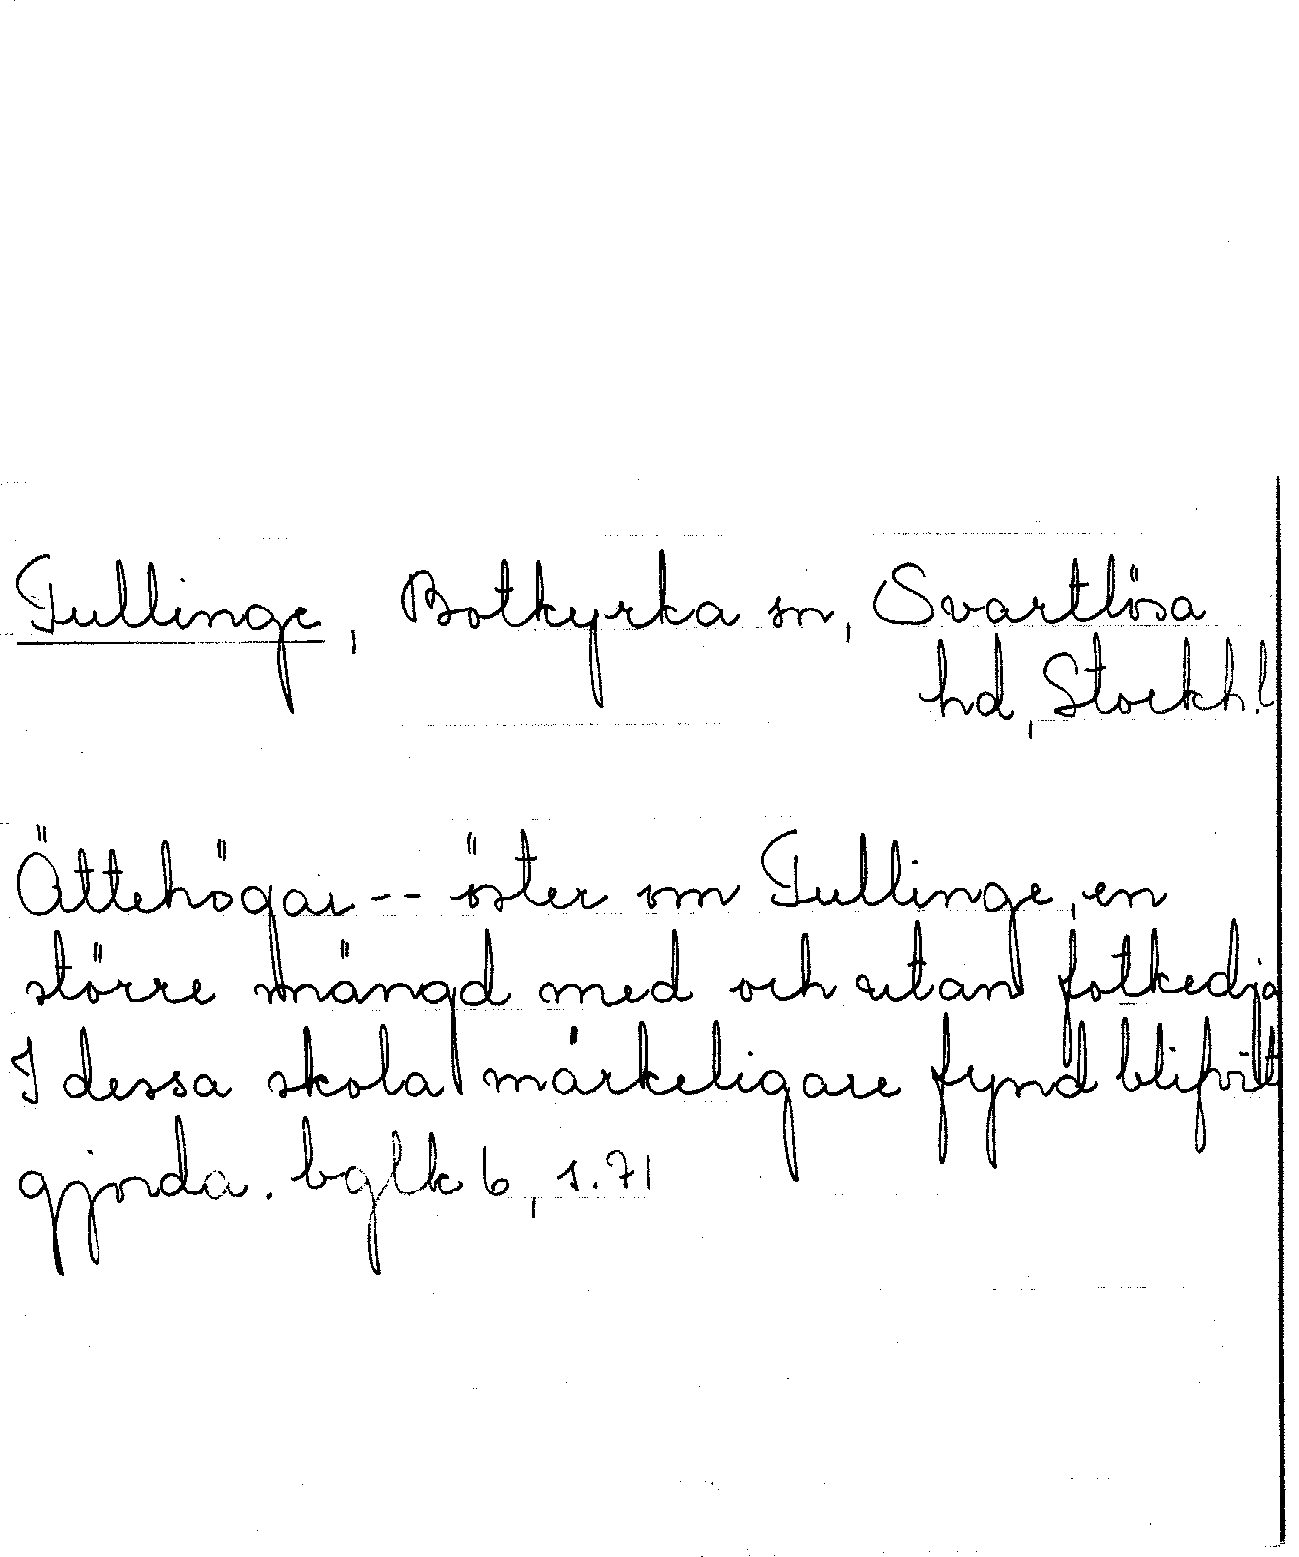 Tullinge, Botkyrka sn, Svartlösa
hd, Stockh.l
Ättehögar -- öster om Tullinge, en
större mängd med och utan fotkedja
I dessa skola märkeligare fynd blifvit
gjorda. bglk 6, s. 71